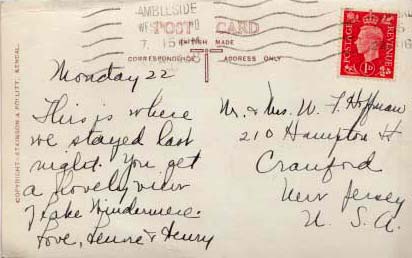 AMBLESIDE
7. 15 PM
POST CARD
BRITISH MADE
CORRESPONDENCE ADDRESS ONLY
POSTAGE REVENUE
1D
COPYRIGHT-ATKINSON & POLLITT, KENDAL.
Monday 22
This is where
we stayed last
night. You get
a lovely view
of Lake Windermere.
Love, & Henry
Mr. & Mrs. W. F. Hoffman
210 Hampton St
Cranford
New Jersey
U. S. A.